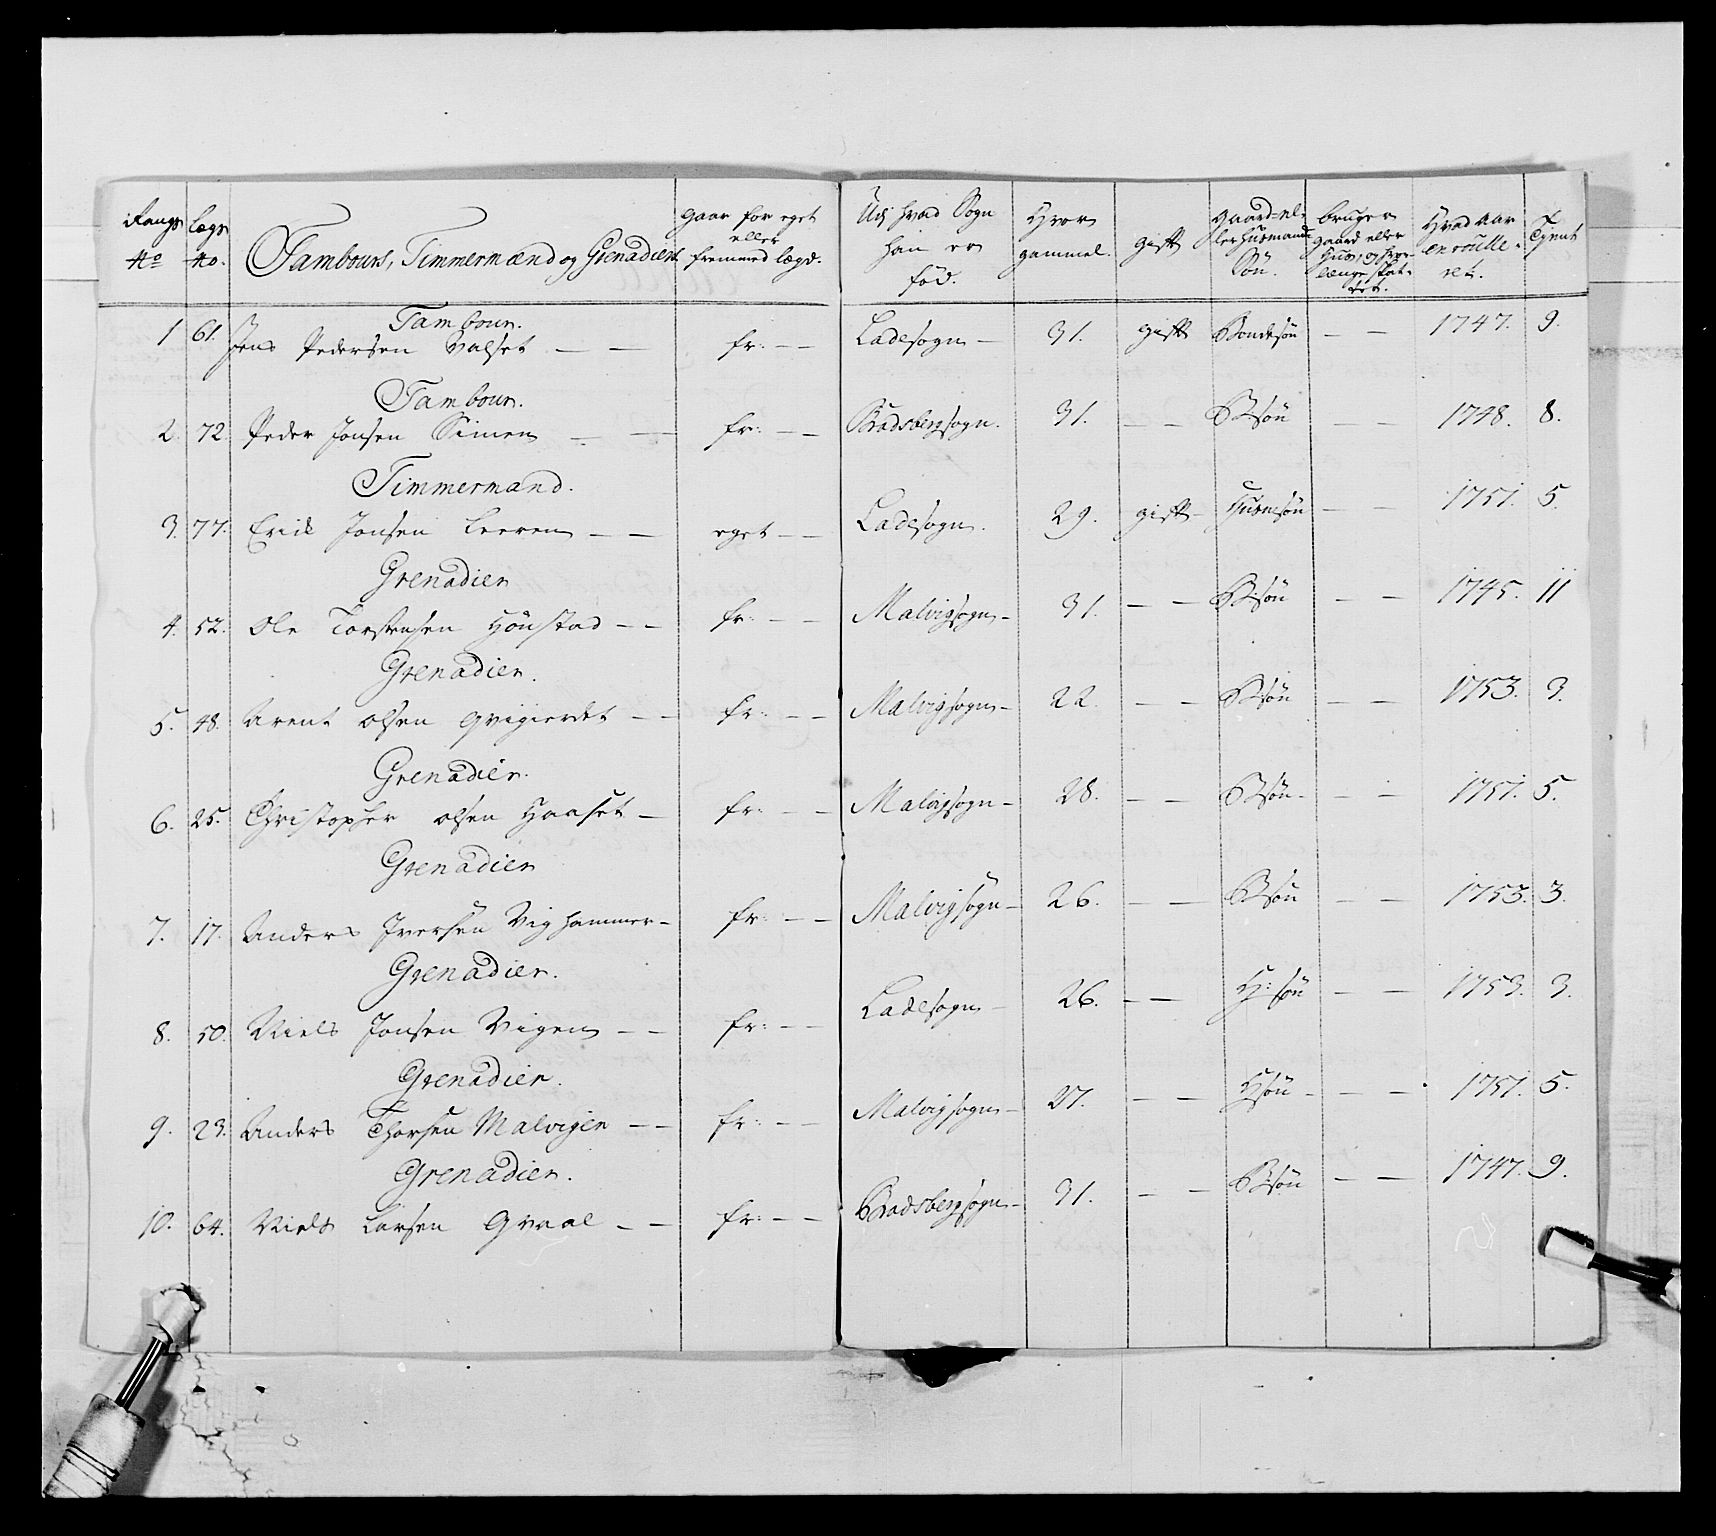 Rangs No | Lægs No. | Tambours, Timmermænd og Grenaderer | gaar for eget eller fremmed lægd. | Udj hvad Sogn han er fød. | Hvor gammel. | gift | gaard- eller Huusmands Søn. | bruger gaard eller Huus, og hvor længe | Hvad Aar enroulleret. | Tjent
Tambour.
1 | 61. | Jens Pedersen Valset — — | fr: — — | Ladesogn — | 31. | gift | Bondesøn | — — | 1747. | 9.
Tambour.
2. | 72. | Peder Jonsen Simen — — | fr: — — | Bradsbergsogn. | 31. | — — | B søn | — — | 1748. | 8.
Timmermand.
3. | 77. | Erich Jonsen Leeren — — | eget — — | Ladesogn. | 29. | gift — | Husmsøn | — — | 1751. | 5.
Grenadier
4. | 52. | Ole Torstensen Hönstad — — | fr: — — | Malvigsogn — | 31. | — — | B: søn | — — | 1745. | 11
Grenadier.
5. | 48. | Arent Olsen Qvigierdet — — | fr: — — | Malvigsogn — | 22. | — — | B: søn | — — | 1753. | 3.
Grenadier.
6. | 25. | Christopher Olsen Haaset — | fr: — — | Malvigsogn — | 28. | — — | B søn — | — — | 1751. | 5.
Grenadier
7. | 17. | Anders Iversen Vighammer — | fr: — — | Malvigsogn — | 26. | — — | B søn | — — | 1753. | 3.
Grenadier.
8. | 50. | Niels Jonsen Vigen — — | fr: — — | Ladesogn — | 26. | — — | H: søn | — — | 1753. | 3.
Grenadier.
9. | 23. | Anders Thorsen Malvigen — — | fr: — — | Malvigsogn — | 27. | — — | H søn — | — — | 1751. | 5.
Grenadier.
10. | 64. | Niels Larsen Qvaal — — | fr: — — | Bradsbergsogn — | 31. | — — | B: søn | — — | 1747. | 9.